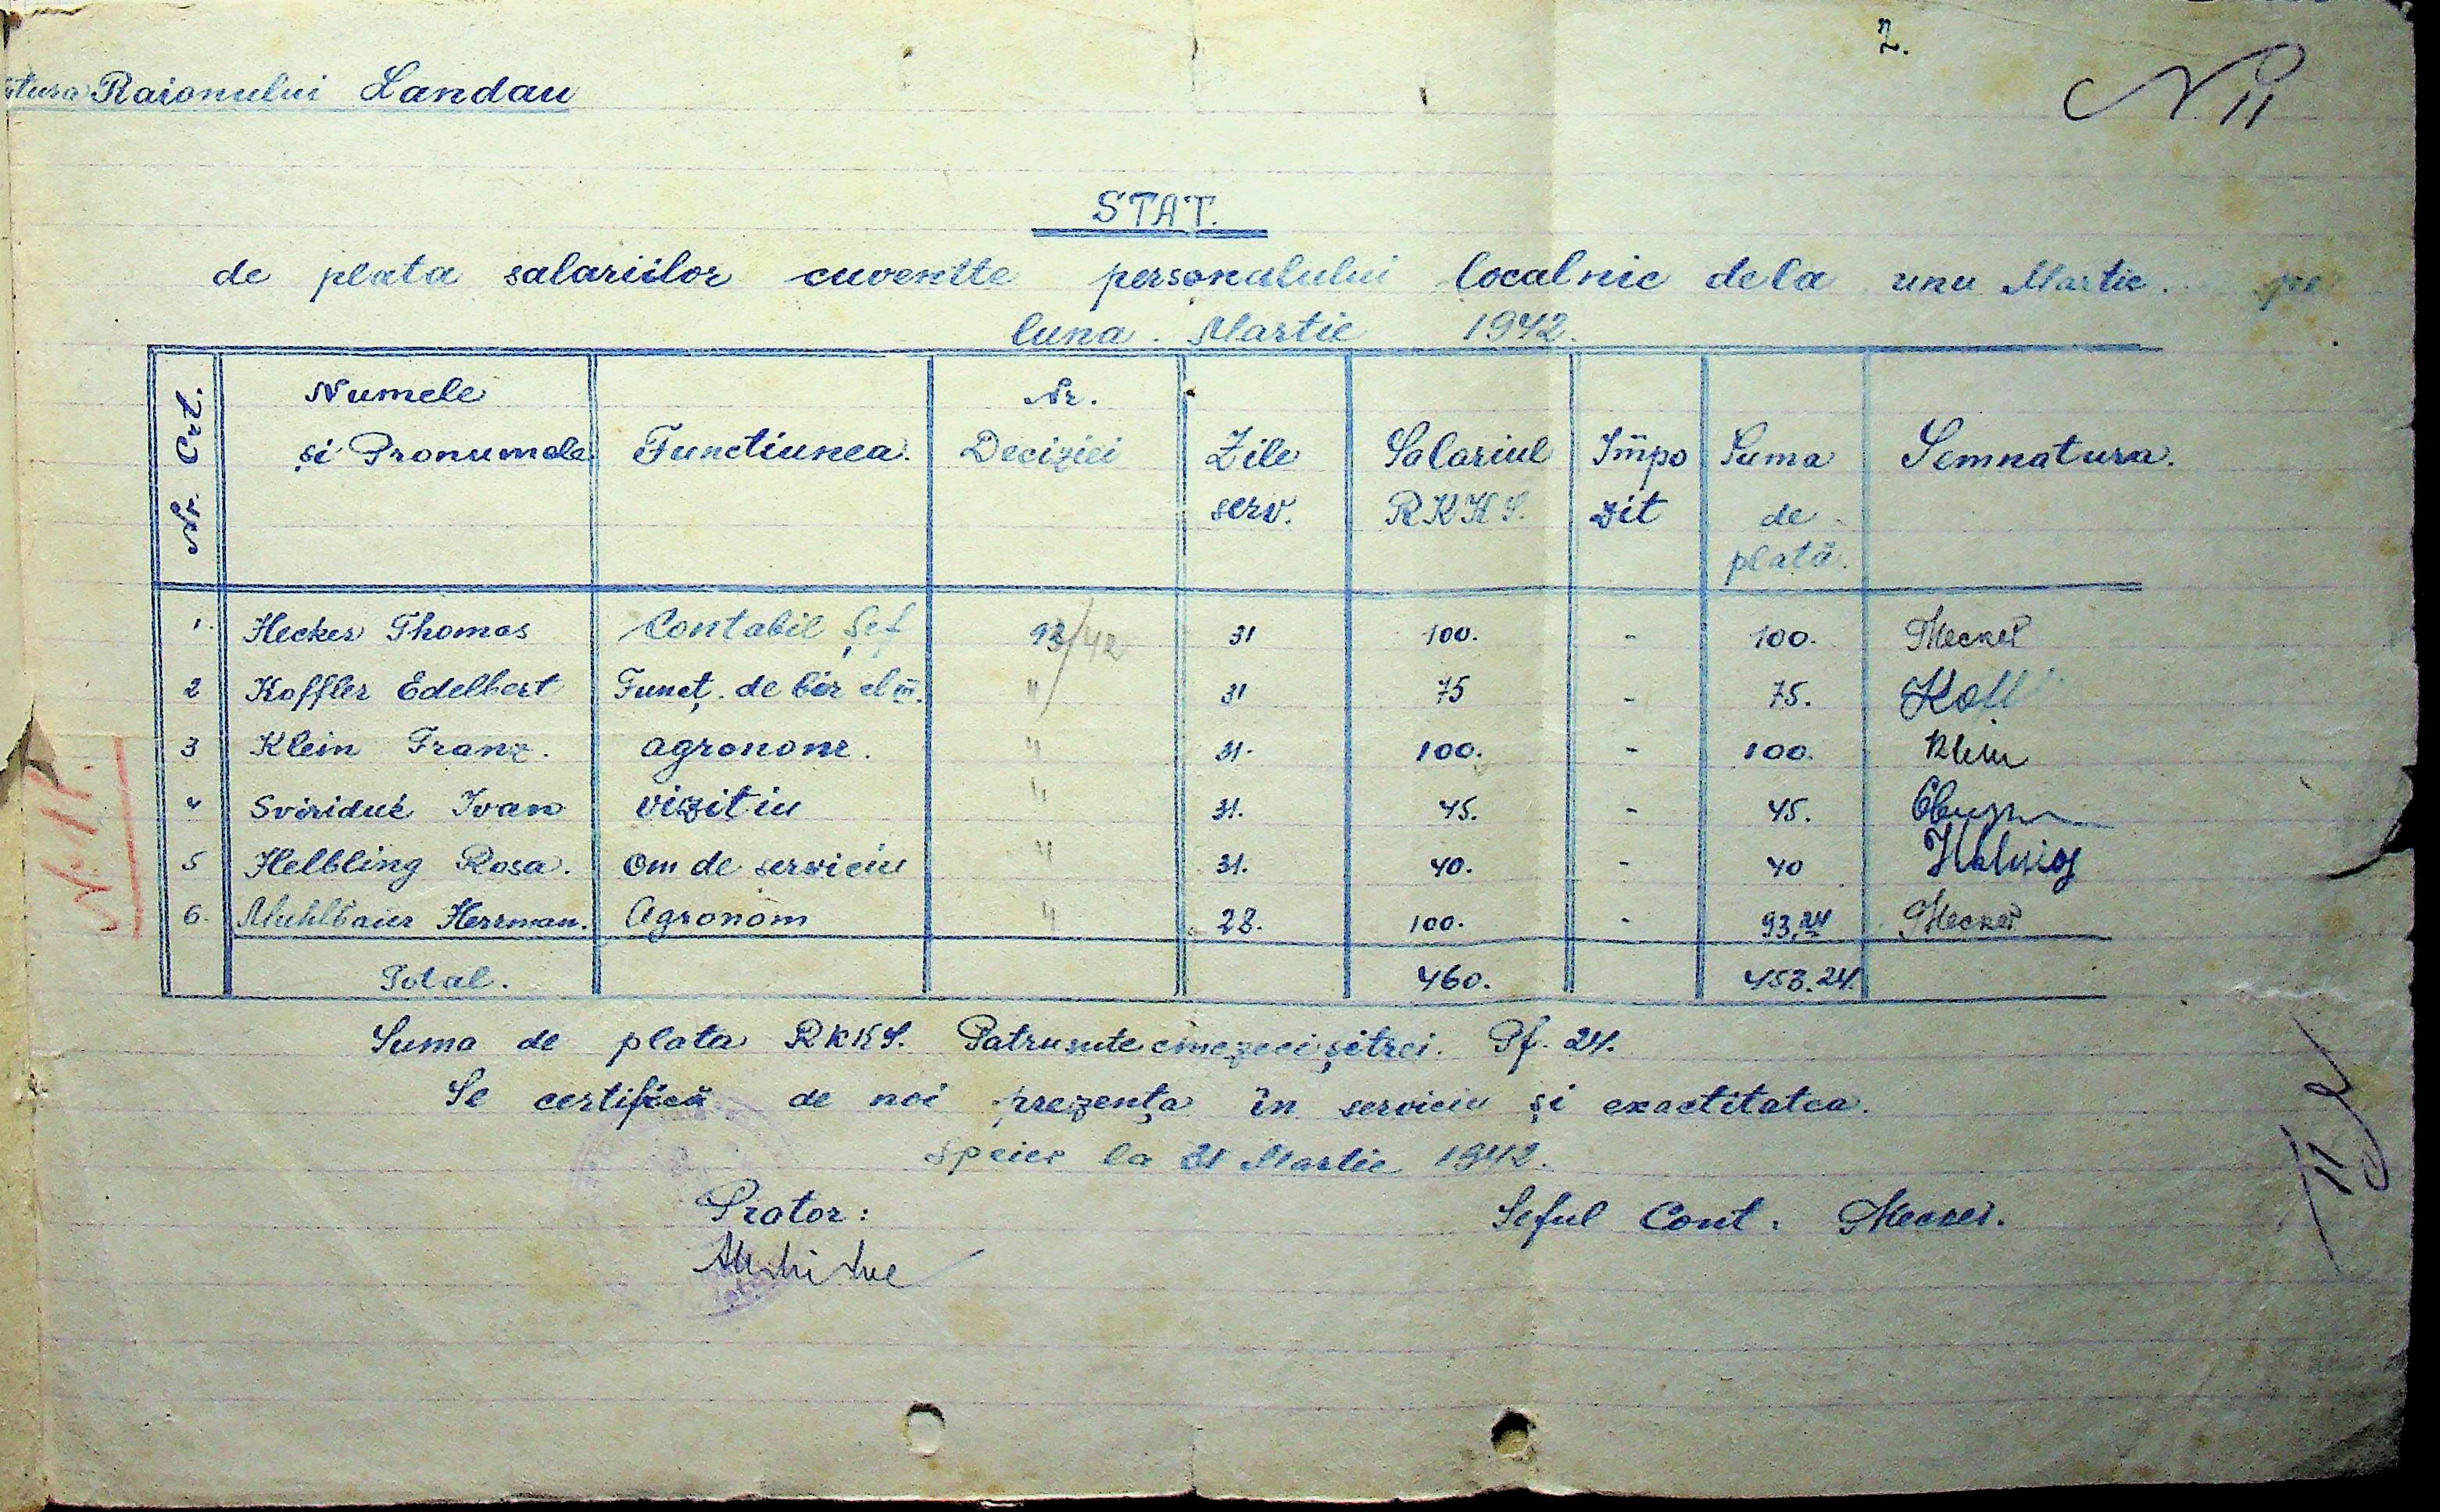 2.
N. 11
tura Raionului Landau
STAT.
de plata salariilor cuvenite personalului localnic dela unu Martie. pe
luna. Martie 1942.
Nr. Crt. Numele și Pronumele Functiunea. Nr. Deciziei Zile serv. Salariul RKKS. Impo zit Suma de plată. Semnatura.
1. Hecker Thomas Contabil Șef 93/42 31 100. - 100. THecker
2 Koffler Edelbert Funcț. de bir cl III. " 31 75 - 75. Koff
3 Klein Franz. agronom. " 31. 100. - 100. Klein
4 Sviriduc Ivan vizitiu " 31. 45. - 45.
5 Helbling Rosa. Om de serviciu " 31. 40. - 40
6. Muhlbaier Herrman. Agronom " 28. 100. - 93,24 THecker
Total. 460. 453.24.
Suma de plata RKKS. Patrusute cincizeci șitrei. Pf. 24.
Se certifică de noi prezența în serviciu și exactitatea.
Speier la 31 Martie 1942.
Pretor: Seful Cont. THecker.
N. 11.